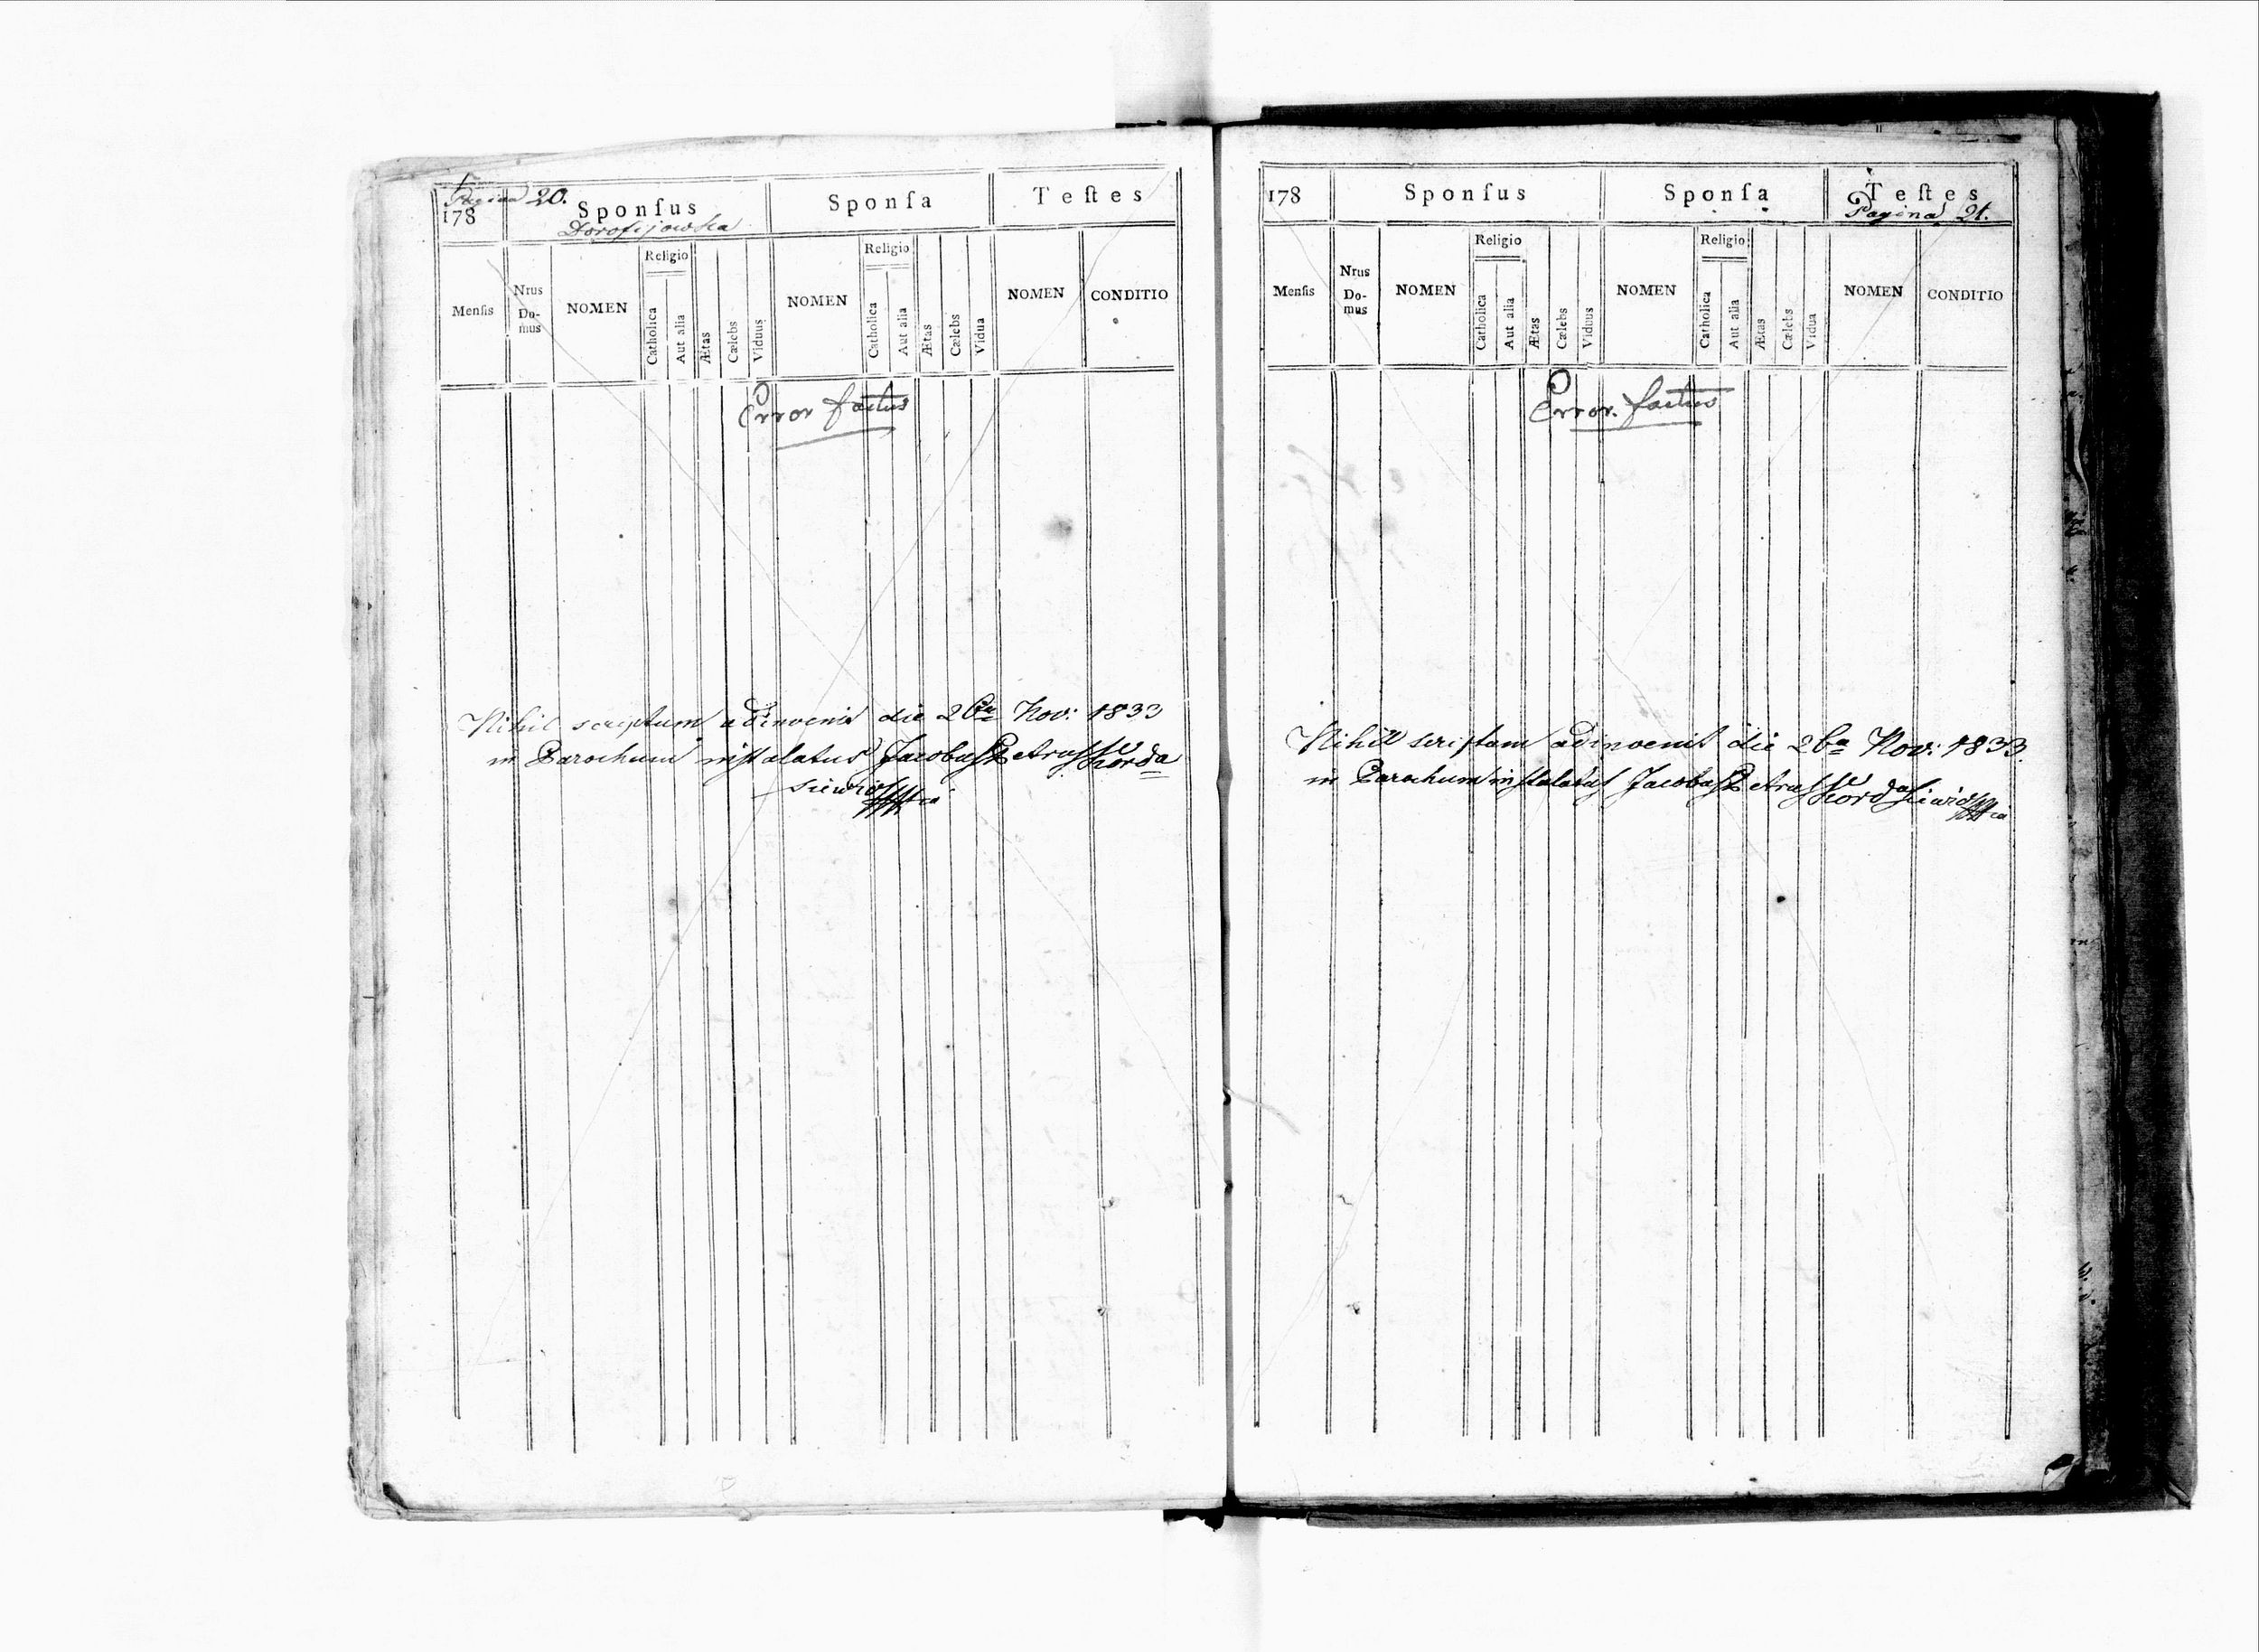 Pagina 20.
178
Sponſus
Dorofijowka
Sponſa
Teſtes
Menſis
Nrus Do-mus
NOMEN
Religio
Catholica
Aut alia
Ætas
Cælebs
Viduus
NOMEN
Religio
Catholica
Aut alia
Ætas
Cælebs
Vidua
NOMEN
CONDITIO
Error factus
Nihil scriptum adinvenit die 26ta Nov: 1833
in Parochum installatus Jacobus Petrus Korda
siewicz
178
Sponſus
Sponſa
Teſtes
Pagina 21.
Menſis
Nrus Do-mus
NOMEN
Religio
Catholica
Aut alia
Ætas
Cælebs
Viduus
NOMEN
Religio
Catholica
Aut alia
Ætas
Cælebs
Vidua
NOMEN
CONDITIO
Error factus
Nihill scriptum adinvenit die 26a Nov: 1833.
in Parochum installatus Jacobus Petrus Kordasiewicz